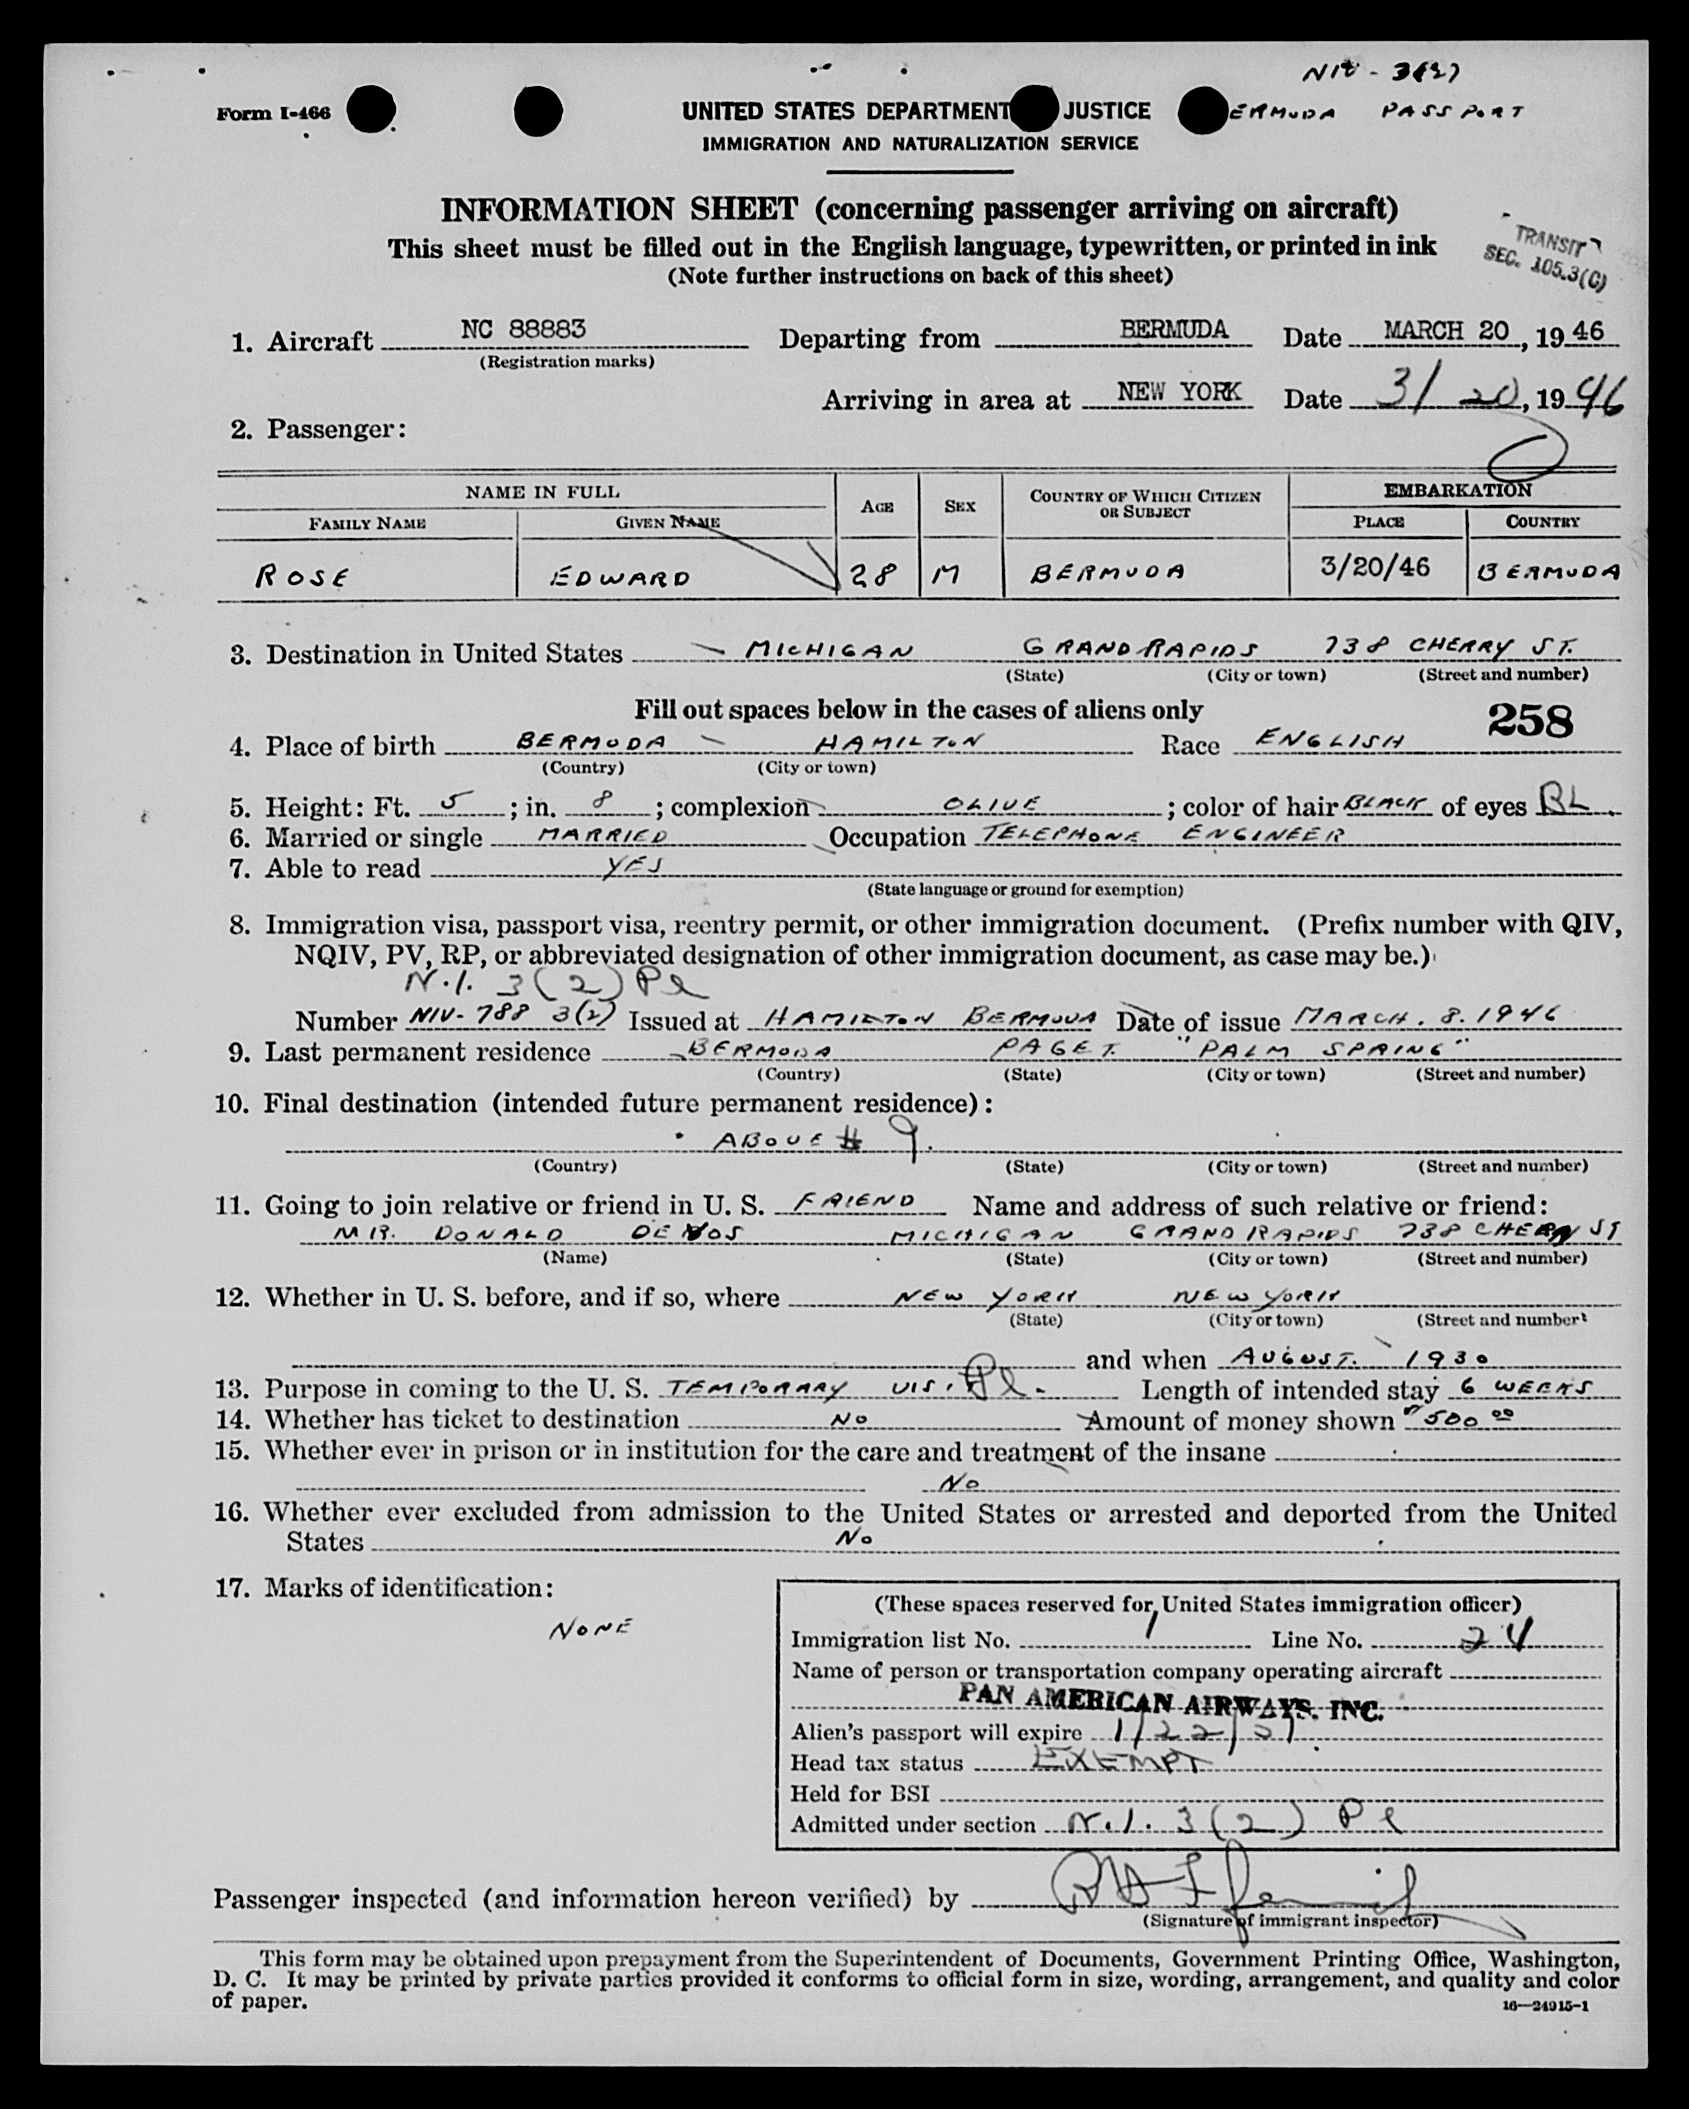 NIV - 3(2)
Form I-466 UNITED STATES DEPARTMENT JUSTICE ERMUDA PASSPORT
IMMIGRATION AND NATURALIZATION SERVICE
INFORMATION SHEET (concerning passenger arriving on aircraft)
This sheet must be filled out in the English language, typewritten, or printed in ink
(Note further instructions on back of this sheet)
TRANSIT
SEC. 105.3(C)
1. Aircraft NC 88883 Departing from BERMUDA Date MARCH 20, 1946
(Registration marks)
Arriving in area at NEW YORK Date 3/20, 1946
2. Passenger:
NAME IN FULL AGE SEX COUNTRY OF WHICH CITIZEN OR SUBJECT EMBARKATION
FAMILY NAME GIVEN NAME PLACE COUNTRY
ROSE EDWARD 28 M BERMUDA 3/20/46 BERMUDA
3. Destination in United States MICHIGAN GRAND RAPIDS 738 CHERRY ST.
(State) (City or town) (Street and number)
Fill out spaces below in the cases of aliens only
258
4. Place of birth BERMUDA - HAMILTON Race ENGLISH
(Country) (City or town)
5. Height: Ft. 5; in. 8; complexion OLIVE; color of hair BLACK of eyes BL
6. Married or single MARRIED Occupation TELEPHONE ENGINEER
7. Able to read YES
(State language or ground for exemption)
8. Immigration visa, passport visa, reentry permit, or other immigration document. (Prefix number with QIV,
NQIV, PV, RP, or abbreviated designation of other immigration document, as case may be.)
N.I. 3(2) Pl
Number NIV-788 3(2) Issued at HAMILTON BERMUDA Date of issue MARCH. 8. 1946
9. Last permanent residence BERMUDA PAGET. "PALM SPRING"
(Country) (State) (City or town) (Street and number)
10. Final destination (intended future permanent residence):
ABOVE # 9.
(Country) (State) (City or town) (Street and number)
11. Going to join relative or friend in U. S. FRIEND Name and address of such relative or friend:
MR. DONALD DE VOS MICHIGAN GRAND RAPIDS 738 CHERRY ST
(Name) (State) (City or town) (Street and number)
12. Whether in U. S. before, and if so, where NEW YORK NEW YORK
(State) (City or town) (Street and number)
and when AUGUST. 1930
13. Purpose in coming to the U. S. TEMPORARY Pl. Length of intended stay 6 WEEKS
14. Whether has ticket to destination NO Amount of money shown $500 00
15. Whether ever in prison or in institution for the care and treatment of the insane
NO
16. Whether ever excluded from admission to the United States or arrested and deported from the United
States NO
17. Marks of identification:
NONE
(These spaces reserved for United States immigration officer)
Immigration list No. 1 Line No. 24
Name of person or transportation company operating aircraft
PAN AMERICAN AIRWAYS. INC.
Alien's passport will expire 1/22/51
Head tax status EXEMPT
Held for BSI
Admitted under section N.I. 3(2) Pl
Passenger inspected (and information hereon verified) by
(Signature of immigrant inspector)
This form may be obtained upon prepayment from the Superintendent of Documents, Government Printing Office, Washington,
D. C. It may be printed by private parties provided it conforms to official form in size, wording, arrangement, and quality and color
of paper.
16—24915-1